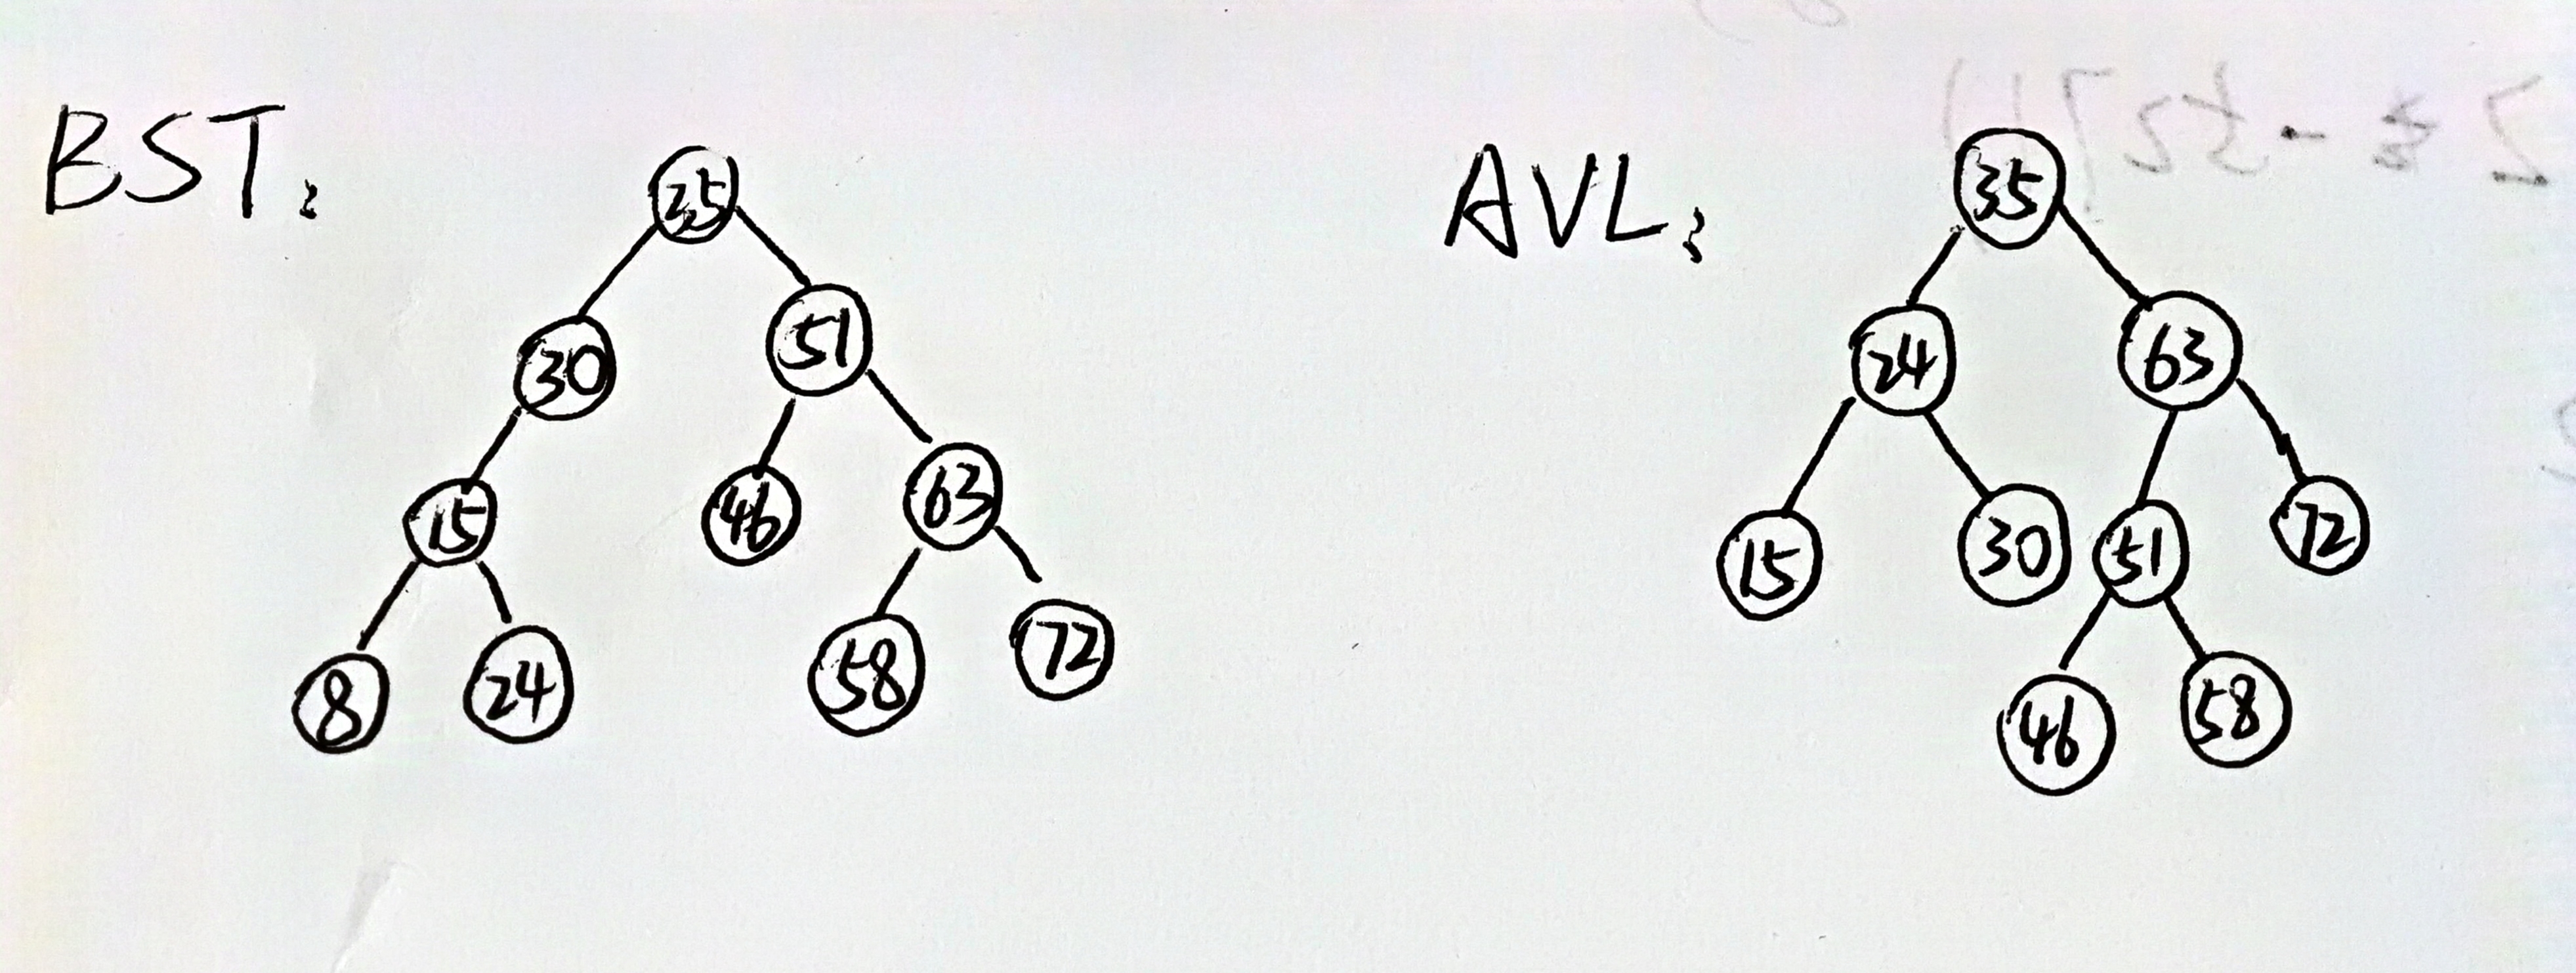 BST:
35
30 51
15 46 63
8 24 58 72
AVL:
35
24 63
15 30 51 72
46 58